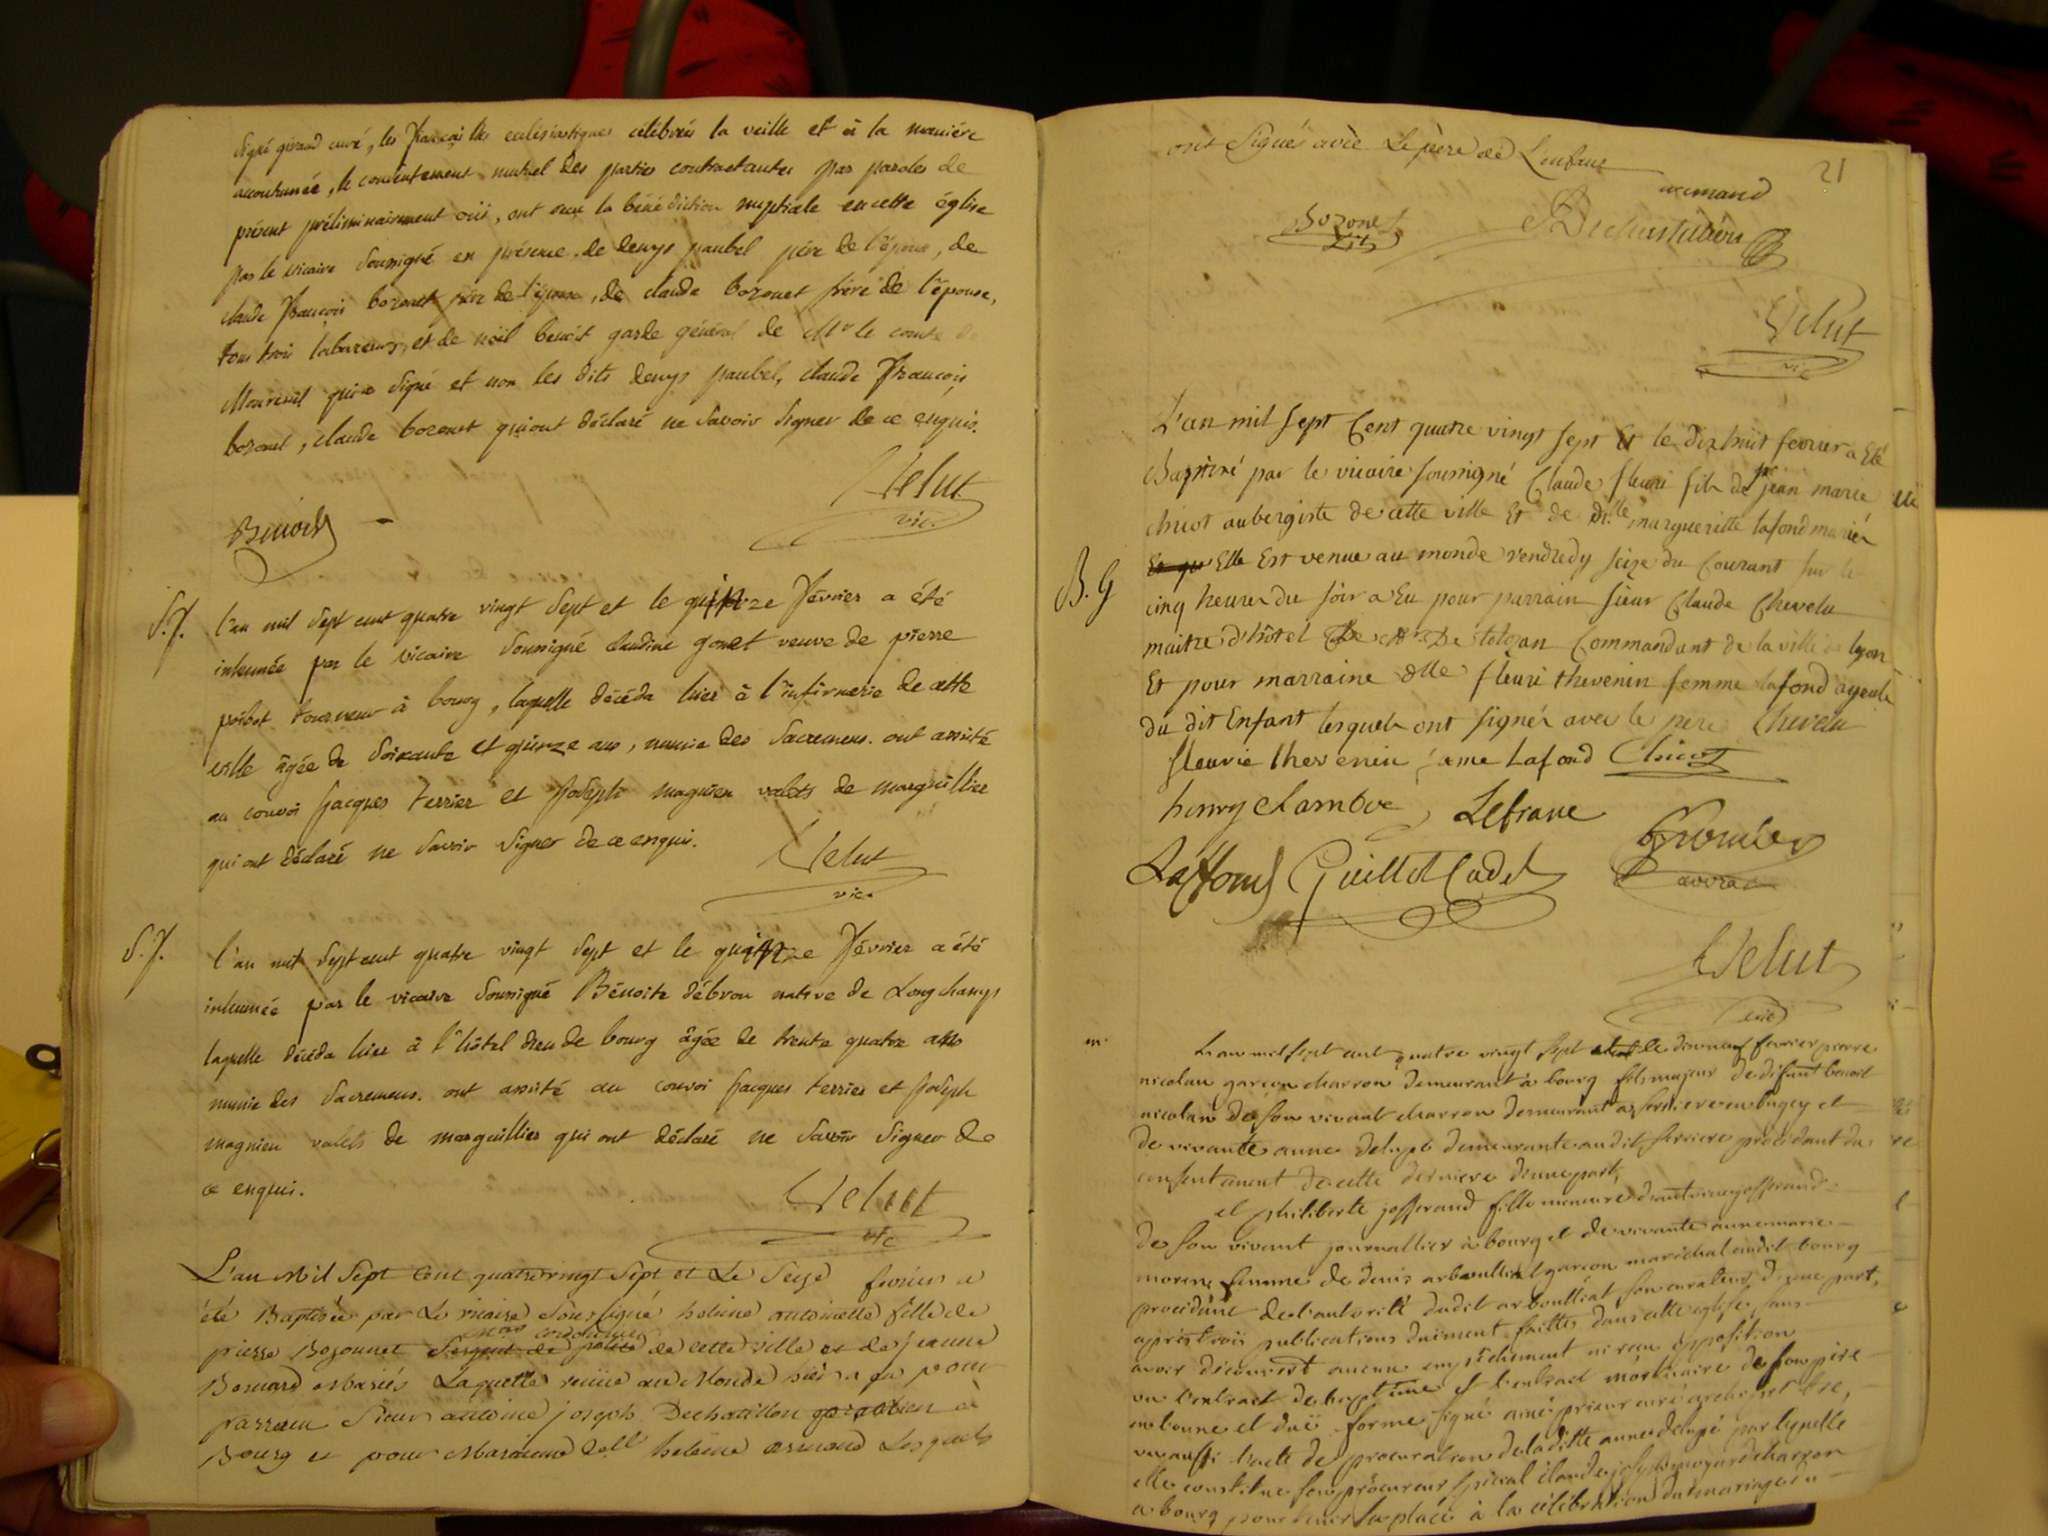 signé girard curé, les fiançailles ecclésiastiques célébrées la veille et à la manière
accoutumée, le consentement mutuel des parties contractantes par paroles de
présent préliminairement ouï, ont reçu la bénédiction nuptiale en cette église
par le vicaire soussigné en présence de denys paubel père de l'époux, de
claude françois bozonet père de l'épouse, de claude bozonet frère de l'épouse,
tous trois laboureurs, et de noël benoit garde général de Mr le comte de
Montrevel qui a signé et non les dits denys paubel, claude françois
bozonet, claude bozonet qui ont déclaré ne savoir signer de ce enquis.
Velut
vic.
Benoit
S.J. l'an mil sept cent quatre vingt sept et le quinze février a été
inhumée par le vicaire soussigné claudine gonet veuve de pierre
poibet tourneur à bourg, laquelle décéda hier à l'infirmerie de cette
ville âgée de soixante et quinze ans, munie des sacremens. ont assisté
au convoi jacques terrier et joseph magnien valets de marguillier
qui ont déclaré ne savoir signer de ce enquis.
Velut
vic.
S.J. l'an mil sept cent quatre vingt sept et le quinze février a été
inhumée par le vicaire soussigné Bénoite débrou native de Longchamps
laquelle décéda hier à l'hôtel dieu de bourg âgée de trente quatre ans
munie des sacremens. ont assisté au convoi jacques terrier et joseph
magnien valets de marguillier qui ont déclaré ne savoir signer de
ce enquis.
Velut
vic
L'an Mil Sept Cent quatre vingt Sept et Le Seize fevrier a
été Baptisée par Le vicaire Soussigné helene antoinette fille de
pierre Bozonnet cordonier de cette ville et de jeanne
Bernard Mariés Laquelle venüe au Monde hier a eu pour
parrain Sieur antoine joseph Dechatillon à
Bourg et pour Maraine Delle helene armand Lesquels
21
ont Signés avec Le père de L'enfant
armand
Bozonet
Dechatillon
Velut
vic
L'an mil sept Cent quatre vingt sept Et le dixhuit fevrier a Eté
Baptisé par le vicaire soussigné Claude fleuri fils de sr jean marie
chicot aubergiste de cette ville Et de Dlle margueritte lafond mariés
Et qu Elle Est venue au monde vendredy seize du Courant sur le
B.G cinq heures du soir a Eu pour parrain sieur Claude Chevelu
maitre d'hôtel De Mr De tolozan Commandant de la ville de lyon
Et pour marraine dlle fleuri thevenin femme lafond ayeule
du dit Enfant lesquels ont signés avec le pere Chevelu
fleurie thevenin fame Lafond Chicot
henry Lefranc
Laffond Guillot Cadet
Velut
vic
m. L'an mil sept cent quatre vingt sept et le dixneuf fevrier pierre
nicolan garçon charron demeurant à bourg fils majeur de défunt benoit
nicolan de son vivant charron demeurant à serriere en bugey et
de vivante anne delupé demeurante audit serriere procédant du
consentement de cette derniere d'une part,
et philiberte josserand fille mineure d'antoine josserand
de son vivant journallier à bourg et de vivante anne marie
morin femme de denis arbouilliat garçon maréchal audit bourg
procédante de l'autorité dudit arbouilliat son curateur d'une part,
après trois publications düement faittes dans cette église sans
avoir découvert aucun empêchement ni reçu opposition
vu l'extrait de baptême et l'extrait mortuaire de son père
en bonne et duë forme signé aimé prieur curé archiprêtre,
vu aussi l'acte de procuration de laditte anne delupé par laquelle
elle constitue son procureur spécial claude joseph charron
a bourg pour tenir sa place à la célébration du mariage